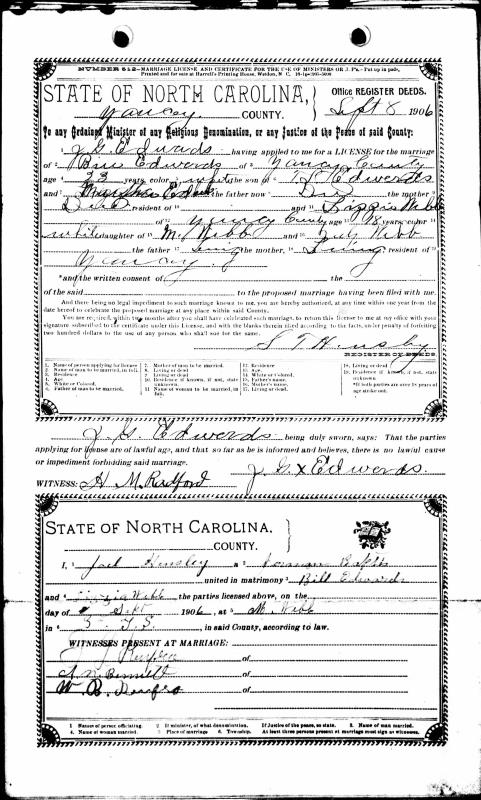 NUMBER 612—MARRIAGE LICENSE AND CERTIFICATE FOR THE USE OF MINISTERS OR J. P's.—Put up in pads,
Printed and for sale at Harrell's Printing House, Weldon, N. C.
STATE OF NORTH CAROLINA,
Office REGISTER DEEDS.
Yancey COUNTY. Sept 8 1906
To any Ordained Minister of any Religious Denomination, or any Justice of the Peace of said County:
J G Edwards having applied to me for a LICENSE for the marriage
of Edwards of Yancey County
age 23 years, color white son of Edwards
and the father now Dead the mother
Dead resident of and Lizzie Webb
of Yancey County age 18 years color
white daughter of M. Webb and Webb
the father living the mother, living resident of
Yancey
*and the written consent of the
of the said to the proposed marriage having been filed with me.
And there being no legal impediment to such marriage known to me, you are hereby authorized, at any time within one year from the
date hereof to celebrate the proposed marriage at any place within said County.
You are required, within two months after you shall have celebrated such marriage, to return this license to me at my office with your
signature subscribed to the certificate under this License, and with the blanks therein filled according to the facts, under penalty of forfeiting
two hundred dollars to the use of any person who shall sue for the same.
S T Hensley
REGISTER OF DEEDS.
1. Name of person applying for license
2. Name of man to be married, in full.
3. Residence
4. Age
5. White or Colored.
6. Father of man to be married.
7. Mother of man to be married.
8. Living or dead
9. Living or dead
10. Residence if known, if not, state unknown
11. Name of woman to be married, in full.
12. Residence
13. Age.
14. White or Colored.
15. Father's name.
16. Mother's name.
17. Living or dead.
18. Living or dead
19. Residence if known, if not, state unknown
*If both parties are over 18 years of age strike out.
J. G. Edwards being duly sworn, says: That the parties
applying for license are of lawful age, and that so far as he is informed and believes, there is no lawful cause
or impediment forbidding said marriage. J. G. x Edwards.
WITNESS: H M. Radford
STATE OF NORTH CAROLINA.
COUNTY.
I, Hensley a
united in matrimony Bill Edwards
and Lizzie Webb the parties licensed above, on the
day of Sept 1906, at M. Webb
in T. S. in said County, according to law.
WITNESSES PRESENT AT MARRIAGE:
of
Bennett of
W. B. Renfro of
1 Names of person officiating. 2 If minister, of what denomination. If Justice of the peace, so state. 3. Name of man married.
4. Name of woman married. 5 Place of marriage 6. Township. At least three persons present at marriage must sign as witnesses.